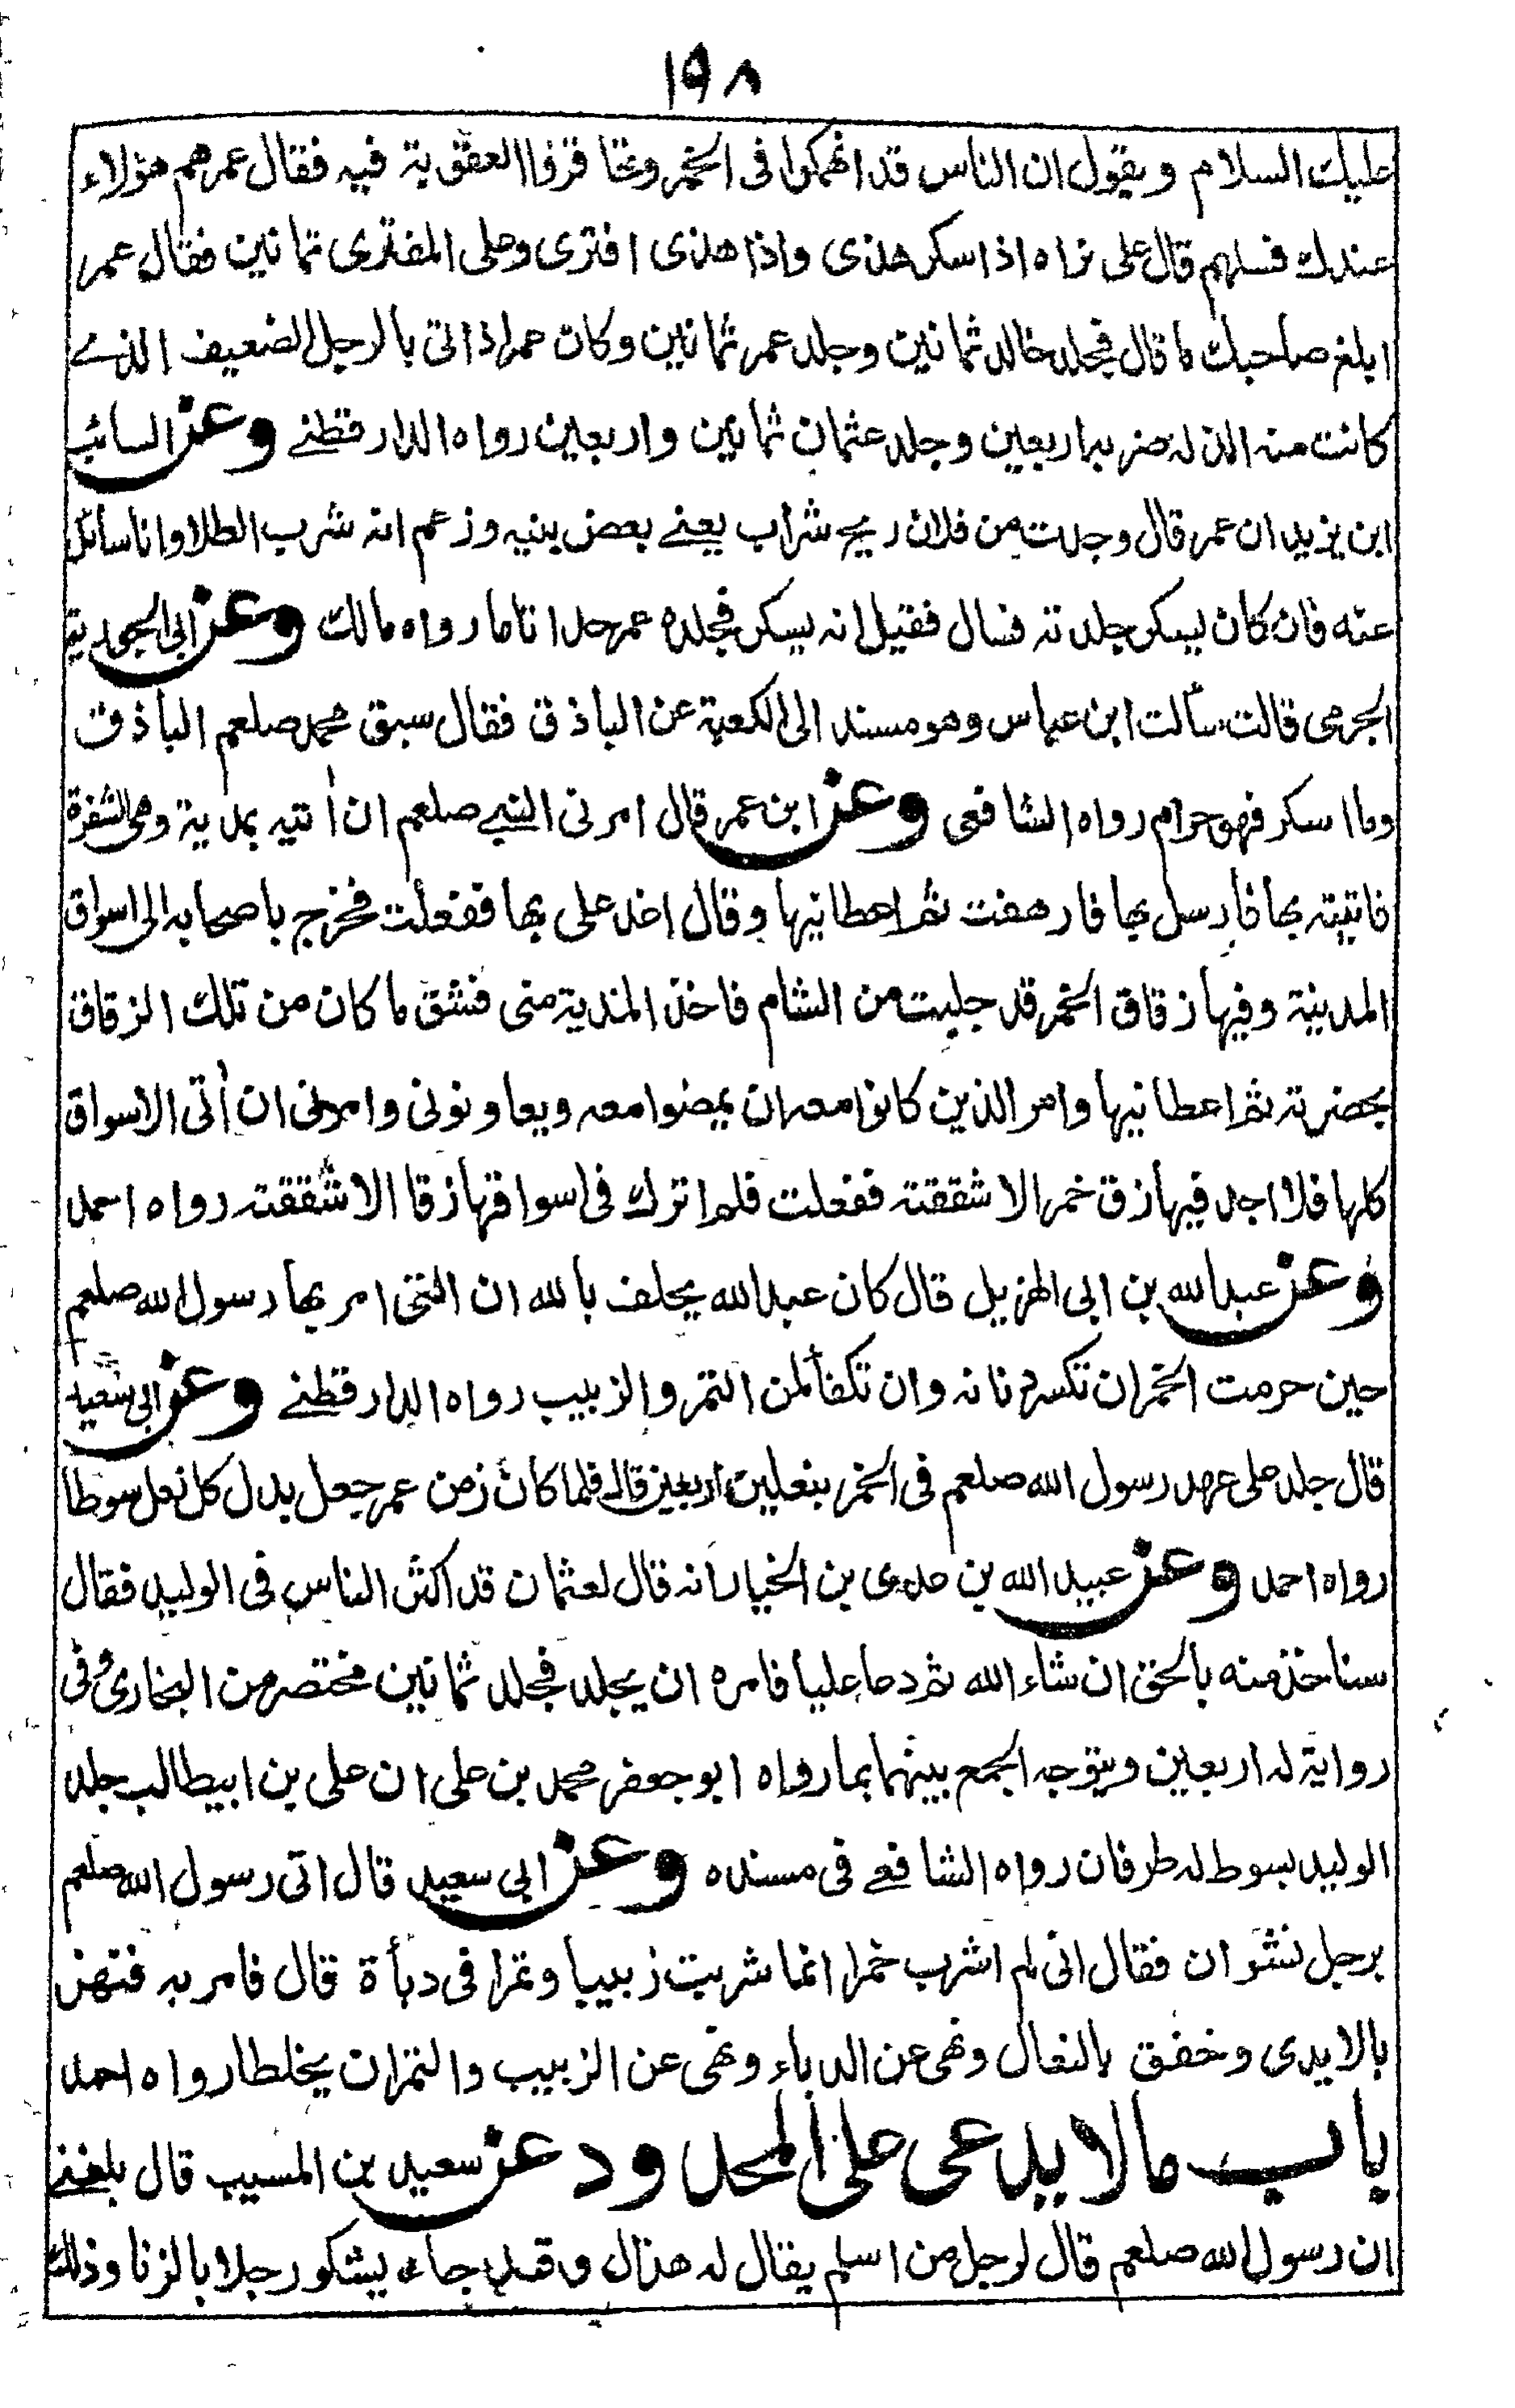 ١٩٨
عليك السلام ويقول ان الناس قد انهمكوا فى الخمر وتحاقروا العقوبة فيه فقال عمر هم هؤلاء
عندك فسلهم قال على نراه اذا سكر هذى واذا هذى افترى وعلى المفترى ثمانين فقال عمر
ابلغ صاحبك ما قال فجلد خالد ثمانين وجلد عمر ثمانين وكان عمر اذا اتى بالرجل الضعيف الذے
كانت منه الذلة ضربه اربعين وجلد عثمان ثمانين واربعين رواه الدارقطنے وعن السائب
ابن يزيد ان عمر قال وجدت من فلان ريح شراب يعنے بعض بنيه وزعم انه شرب الطلا وانا سائل
عنه فان كان يسكر جلدته فسال فقيل انه يسكر فجلده عمر حدا تاما رواه مالك وعن ابى الجويرية
الجرمى قالت سألت ابن عباس وهو مسند الى الكعبة عن الباذق فقال سبق محمد صلعم الباذق
وما اسكر فهو حرام رواه الشافعى وعن ابن عمر قال امرنى النبے صلعم ان اٰتيه بمدية وهى الشفرة
فاتيته بها فارسل بها فارهفت ثم اعطانيها وقال اغد على بها ففعلت فخرج باصحابه الى اسواق
المدينة وفيها زقاق الخمر قد جلبت من الشام فاخذ المدية منى فشق ما كان من تلك الزقاق
بحضرته ثم اعطانيها وامر الذين كانوا معه ان يمضوا معه ويعاونونى وامرنى ان اٰتى الاسواق
كلها فلا اجد فيها زق خمر الا شققته ففعلت فلم اترك فى اسواقها زقا الا شققته رواه احمد
وعن عبد الله بن ابى الهزيل قال كان عبد الله يحلف بالله ان التى امر بها رسول الله صلعم
حين حرمت الخمر ان تكسر دنانه وان تكفأ لمن التمر والزبيب رواه الدارقطنے وعن ابى سعيد
قال جلد على عهد رسول الله صلعم فى الخمر بنعلين اربعين قال فلما كان زمن عمر جعل بدل كل نعل سوطا
رواه احمد وعن عبيد الله بن عدى بن الخيار انه قال لعثمان قد اكثر الناس فى الوليد فقال
سناخذ منه بالحق ان شاء الله ثم دعا عليا فامره ان يجلد فجلد ثمانين مختصر من البخارى وفى
رواية له اربعين ويتوجه الجمع بينهما بما رواه ابو جعفر محمد بن على ان على بن ابيطالب جلد
الوليد بسوط له طرفان رواه الشافعے فى مسنده وعن ابى سعيد قال اتى رسول الله صلعم
برجل نشوان فقال انى لم اشرب خمرا انما شربت زبيبا وتمرا فى دبأة قال فامر به فنهز
بالايدى وخفق بالنعال ونهى عن الدباء ونهى عن الزبيب والتمر ان يخلطا رواه احمد
باب ما لا يدعى على المحدود عن سعيد بن المسيب قال بلغنے
ان رسول الله صلعم قال لرجل من اسلم يقال له هزال وقد جاء يشكو رجلا بالزنا وذلك